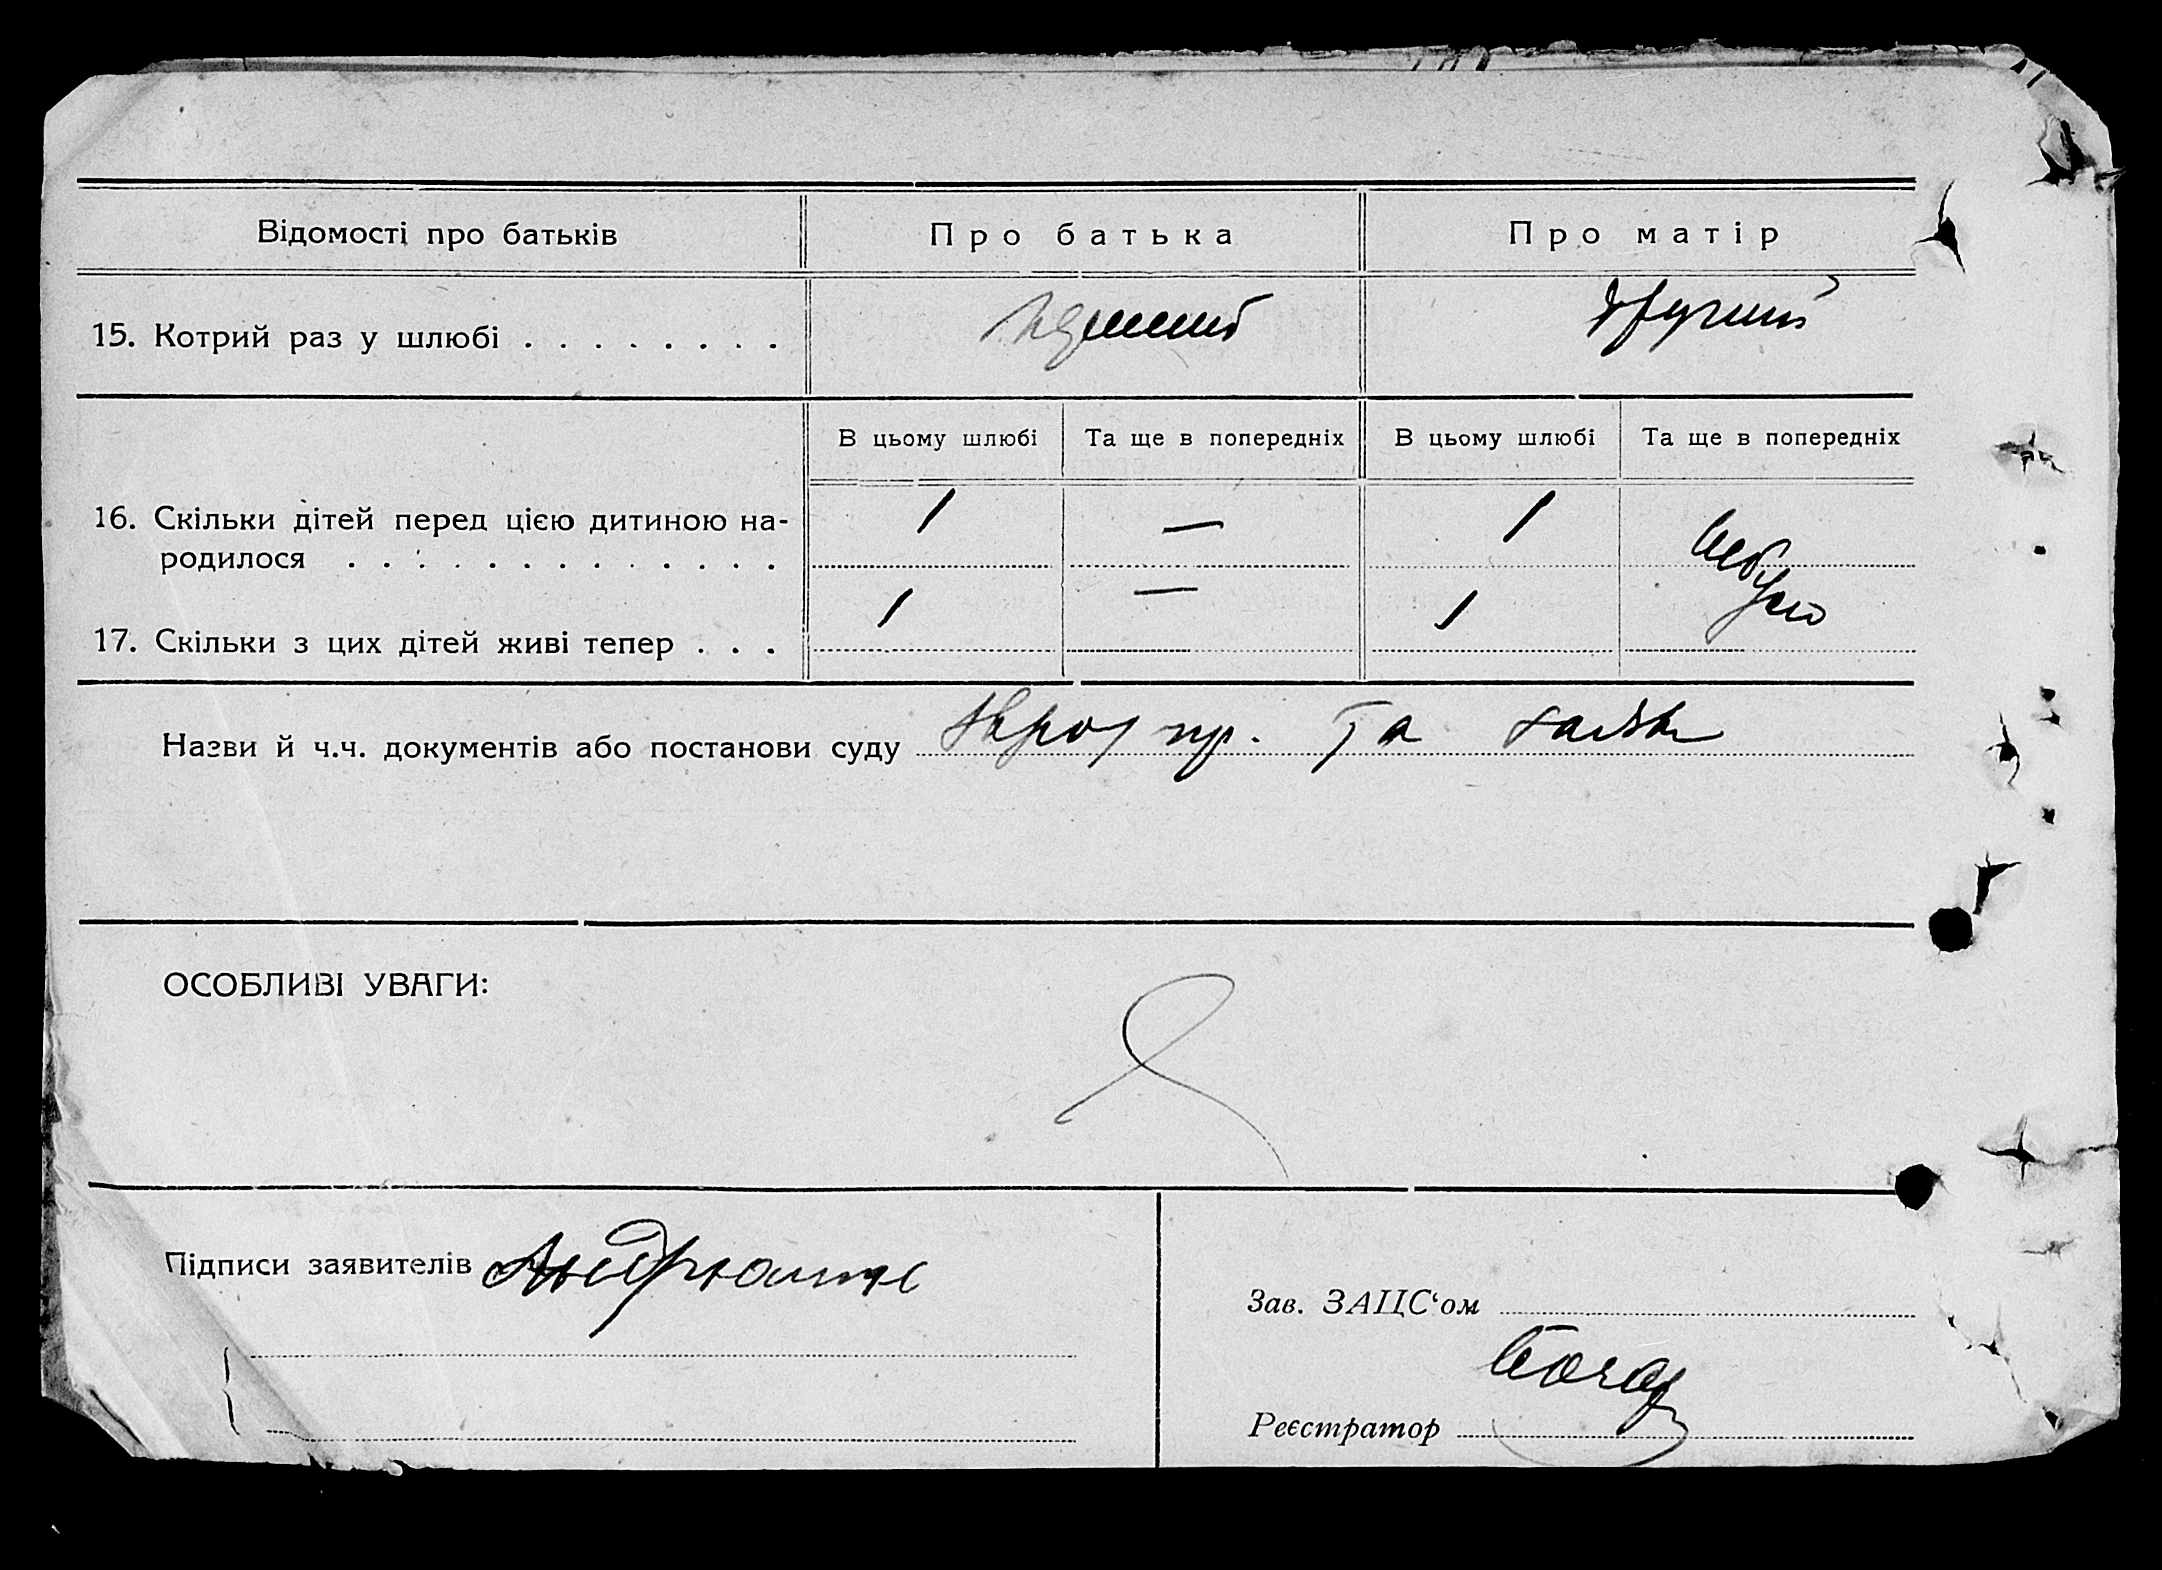 Відомості про батьків Про батька Про матір
15. Котрий раз у шлюбі . . . . . . . . другий
В цьому шлюбі Та ще в попередніх В цьому шлюбі Та ще в попередніх
16. Скільки дітей перед цією дитиною на-
родилося . . . . . . . . . . . . . 1 — 1 не було
17. Скільки з цих дітей живі тепер . . . 1 — 1
Назви й ч.ч. документів або постанови суду пр. та
ОСОБЛИВІ УВАГИ:
Підписи заявителів
Зав. ЗАЦС‘ом
Реєстратор